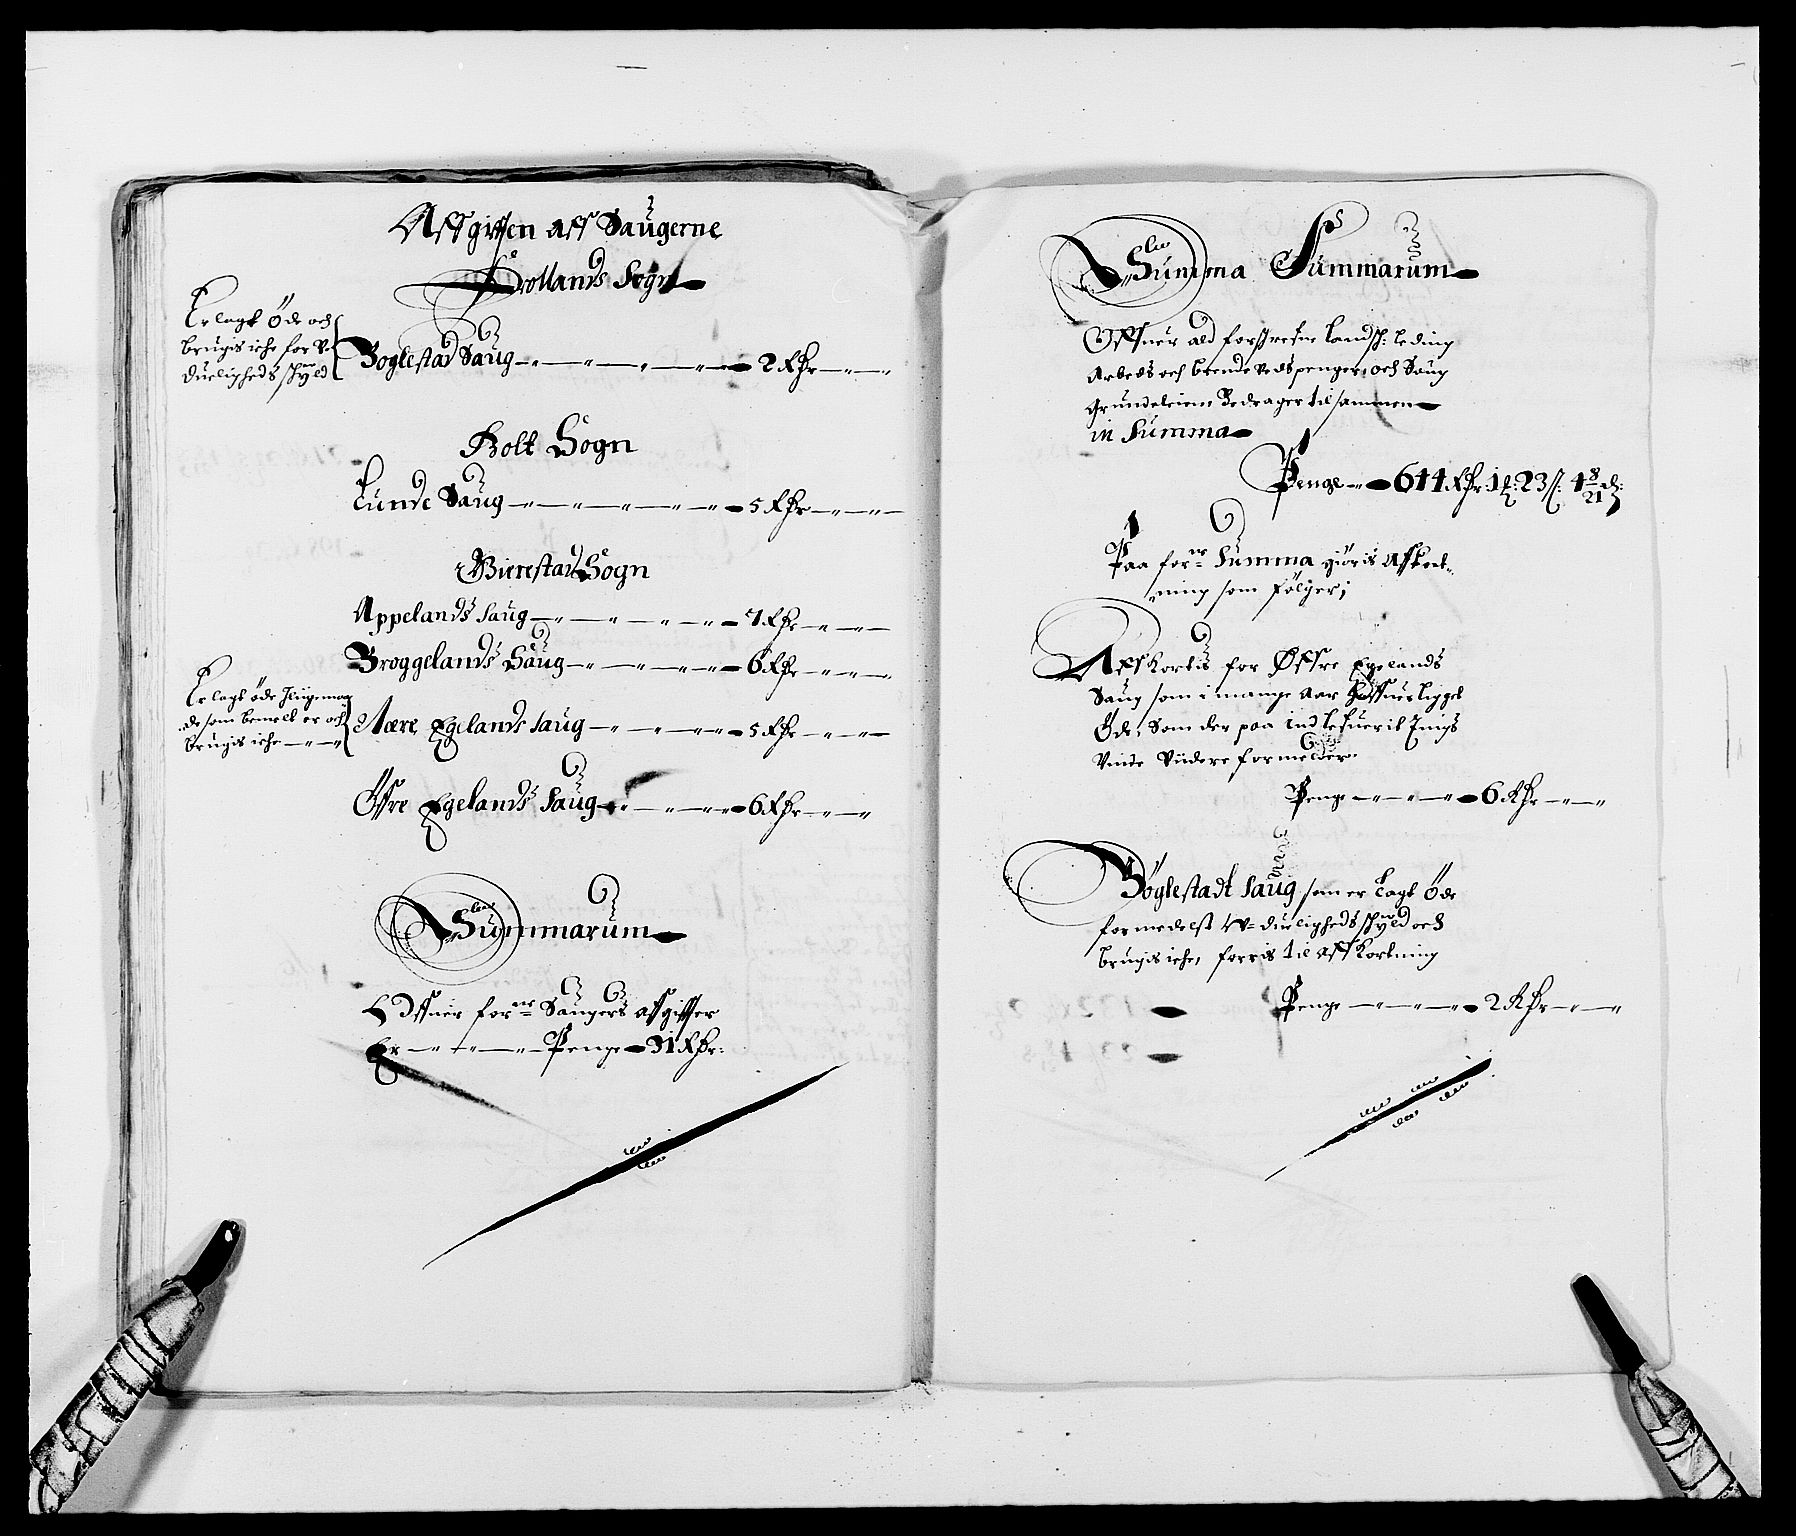 Affgiften aff Saugerne
Hollands Sogn
Er lagt Öde och
brugis iche for V-
dueligheds schyld
Boglestad Saug — 2 Rdr — —
Holt Sogn
Lunde Saug — 5 Rdr — —
Gierestad Sogn
Appelands Saug — 7 Rdr — —
Broggelands Saug — 6 Rdr — —
Er lagt öde
de som bemelt er och
brugis iche — —
Nære Egelands Saug — 5 Rdr — —
Öfre Egelands Saug — 6 Rdr — —
Summarum
Offuer forne Saugers afgifter
Er — Penge 31 Rdr:
Summa Summarum
Offuer ald forskrefne Landsch: Leding
Arbeds och brende Veds penger, och Saug
Grundeleien Bedrager til sammen
in Summa
Penge — 644 Rdr 1 ℔: 23 s: 4 8/21 d:
Paa forne Summa giöris Affkort-
ning som fölger;
Affkortis for Øffre Egelands
Saug som i mange Aar haffuer ligget
Öde, Som der paa indlefuerit Tings
Vinde Viidere formelder
Penge — 6 Rdr — —
Boglestadt Saug som er lagt öde
formedelst V-dueligheds schyld och
brugis iche, föris til affkortning
Penge — 2 Rdr — —